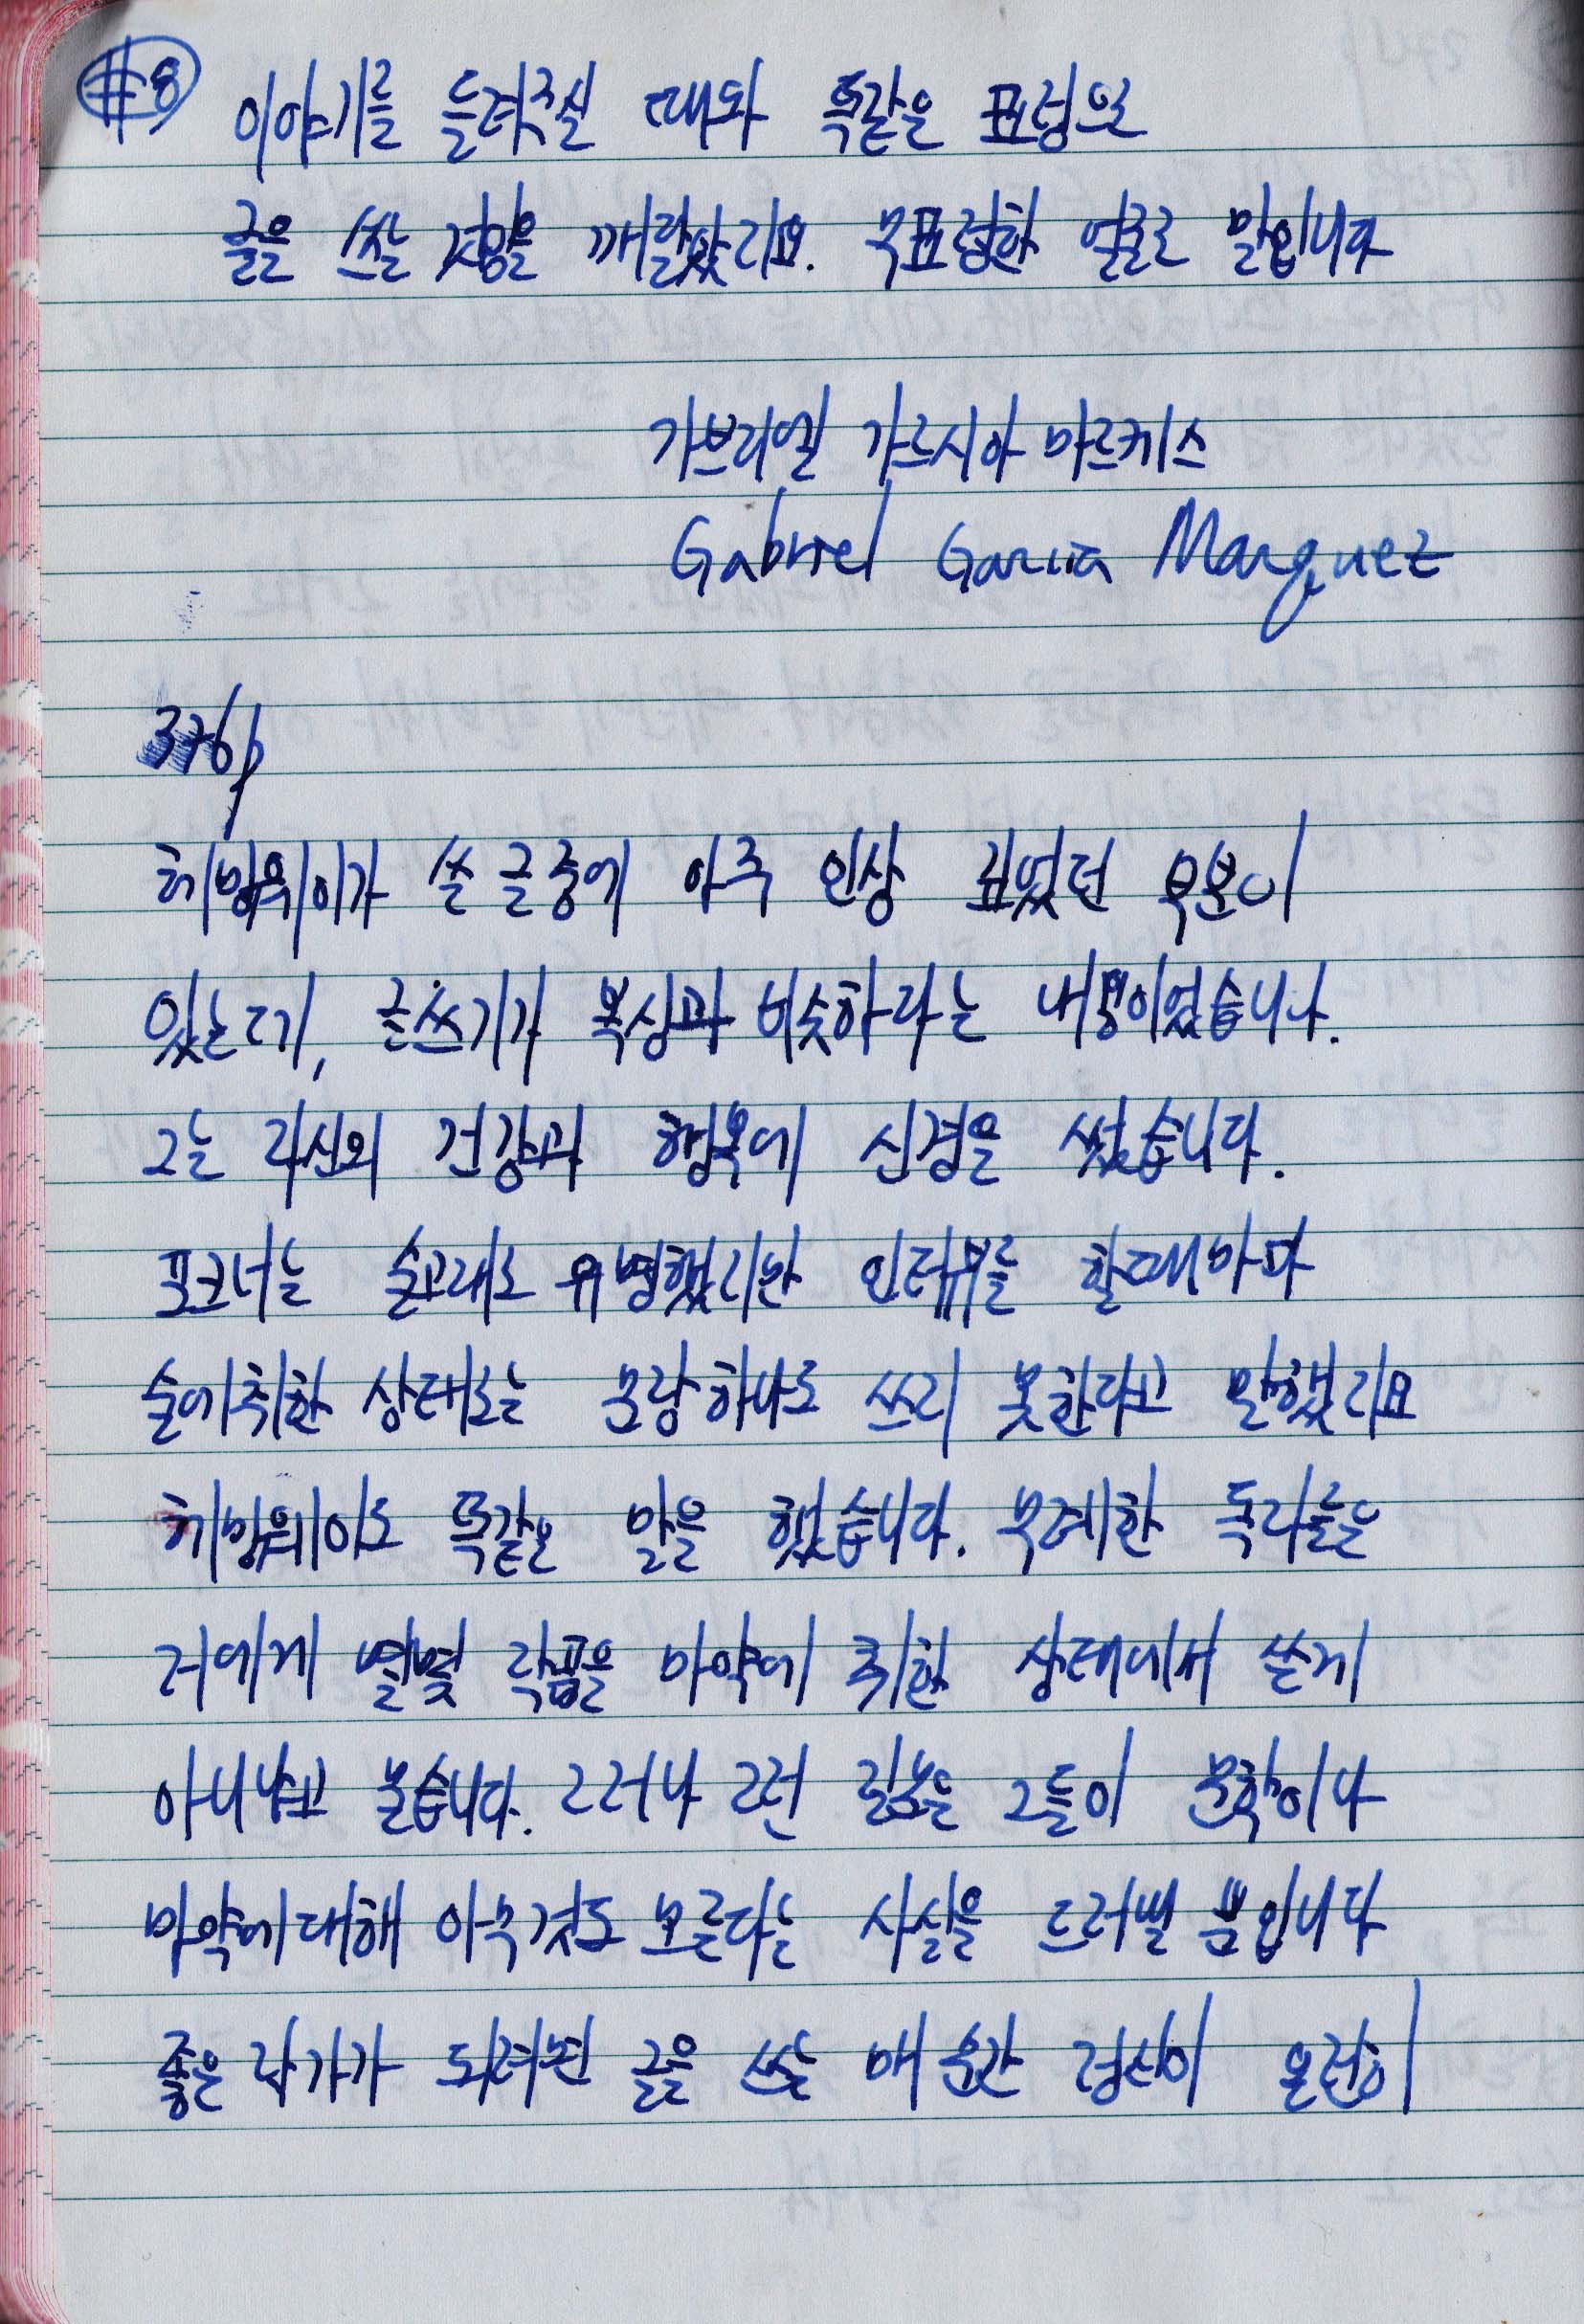 #8 이야기를 들려주실 때와 똑같은 표정으로
글을 쓸 것임을 깨달았지요. 무표정한 얼굴로 말입니다
가브리엘 가르시아 마르케스
Gabriel Garcia Marquez
376p
헤밍웨이가 쓴 글중에 아주 인상 깊었던 부분이
있는데, 글쓰기가 복싱과 비슷하다는 내용이었습니다.
그는 자신의 건강과 행복에 신경을 썼습니다.
포크너는 술고래로 유명했지만 인터뷰를 할때마다
술에취한 상태로는 문장하나도 쓰지 못한다고 말했지요
헤밍웨이도 똑같은 말을 했습니다. 무례한 독자들은
저에게 몇몇 작품은 마약에 취한 상태에서 쓴게
아니냐고 묻습니다. 그러나 그런 질문은 그들이 문학이나
마약에대해 아무것도 모른다는 사실을 드러낼 뿐입니다
좋은 작가가 되려면 글을 쓰는 매 순간 정신이 온전히